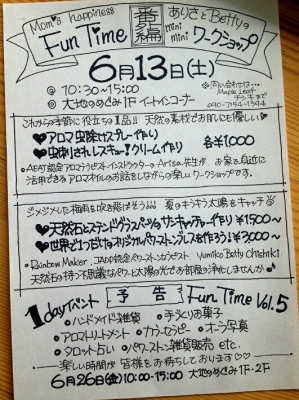 Mom's happiness
Fun Time
番編
ありさとBettyの
mini mini ワークショップ
6月13日(土)
@ 10:30~15:00
@ 大地のめぐみ1F イートインコーナー
※問い合わせは...
Maple Leaf
090-7154-1394
これからの季節に役立ちの1品!! 天然の素材でお肌にも優しい♪
♥アロマ虫除けスプレー作り
♥虫刺されレスキュークリーム作り
各¥1000
アロマセラピストインストラクターのArisa先生が、お家で身近に
活用できるアロマオイルのお話をしながらの楽しいワークショップです。
ジメジメした梅雨を吹き飛ばそう!!! 夏のキラキラ太陽をキャッチ
♥天然石とステンドグラスパーツのサンキャッチャー作り ¥1500~
♥世界でひとつだけのオリジナルパワーストンブレスを作ろう! ¥3,000~
Rainbow Maker JADP認定パワーストンセラピスト Yumiko Betty Chishiki
天然石の持つ不思議なパワーと太陽の光でお部屋の浄化しませんか♪
1dayイベント
予告
Fun Time Vol.5
・ハンドメイド雑貨 ・手づくりお菓子
・アロマトリートメント ・カラーセラピー ・オーラ写真
・タロット占い ・パワーストン雑貨販売 etc.
楽しい時間が皆様をお待ちしております♡♡
6月26日(金)10:00-15:00 大地のめぐみ1F・2F